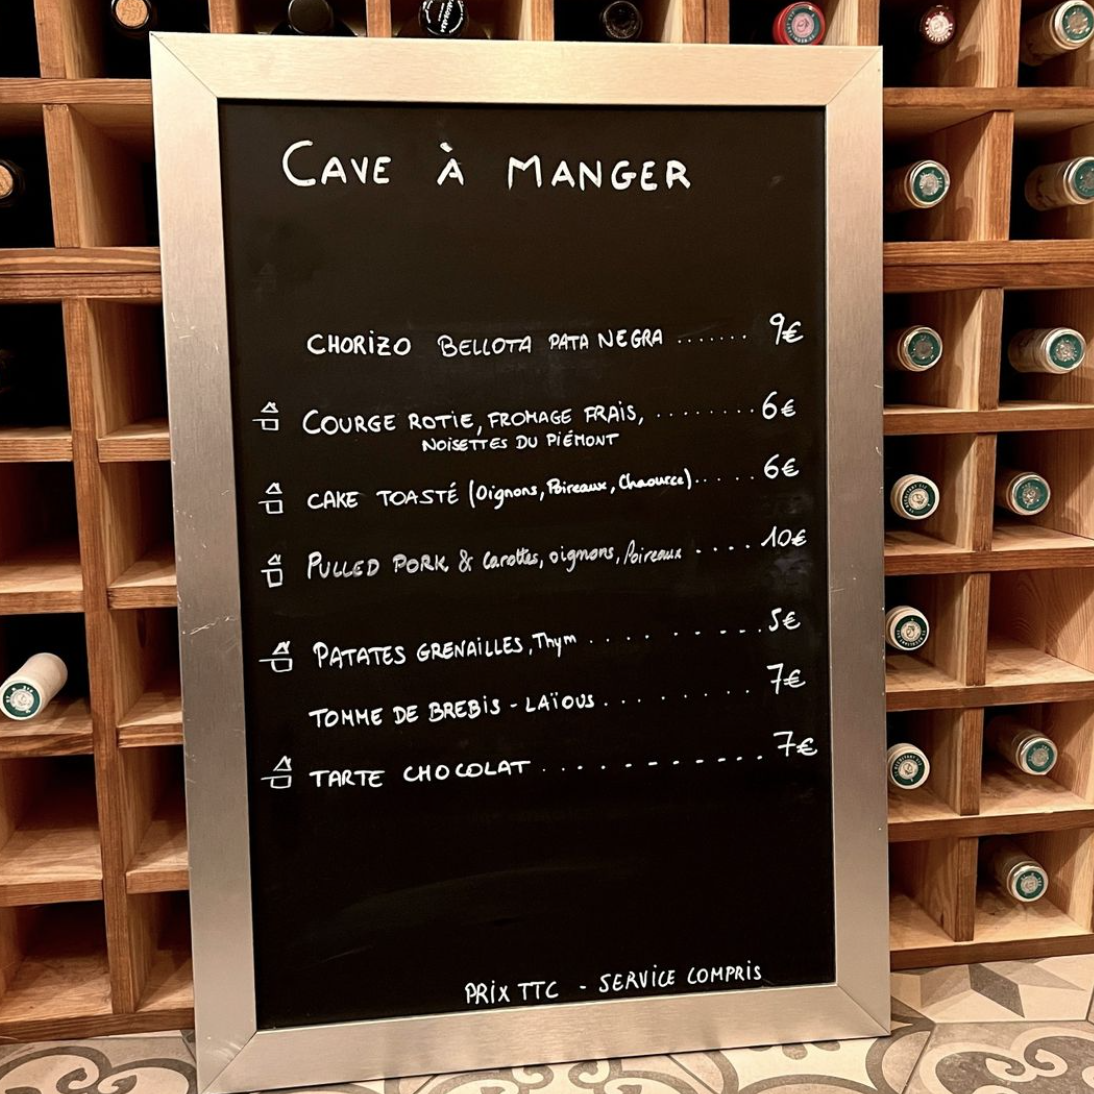 CAVE À MANGER
CHORIZO BELLOTA PATA NEGRA ....... 9€
COURGE ROTIE, FROMAGE FRAIS, ......... 6€
NOISETTES DU PIÉMONT
CAKE TOASTÉ (Oignons, Poireaux, Chaource) ..... 6€
PULLED PORK & carottes, oignons, Poireaux .... 10€
PATATES GRENAILLES, Thym ......... 5€
TOMME DE BREBIS - LAÏOUS ......... 7€
TARTE CHOCOLAT ........... 7€
PRIX TTC - SERVICE COMPRIS